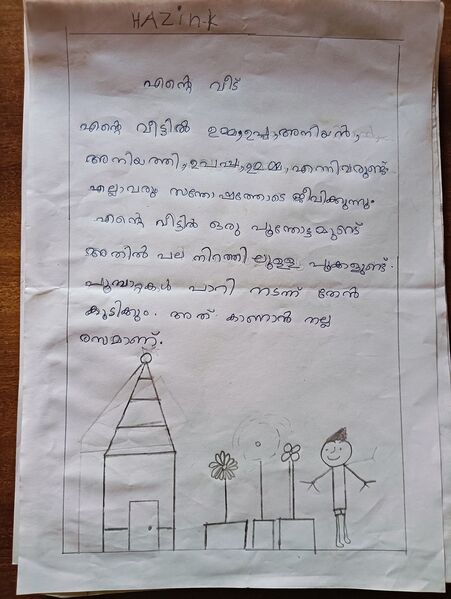 HAZIN-K
എന്റെ വീട്
എന്റെ വീട്ടിൽ ഉമ്മ, ഉപ്പ, അനിയൻ,
അനിയത്തി, ഉപ്പപ്പ, ഉമ്മമ്മ, എന്നിവരുണ്ട്.
എല്ലാവരും സന്തോഷത്തോടെ ജീവിക്കുന്നു.
എന്റെ വീട്ടിൽ ഒരു പൂന്തോട്ടമുണ്ട്
അതിൽ പല നിറത്തി ലുള്ള പൂക്കളുണ്ട്.
പൂമ്പാറ്റകൾ പാറി നടന്ന് തേൻ
കുടിക്കും. അത് കാണാൻ നല്ല
രസമാണ്.